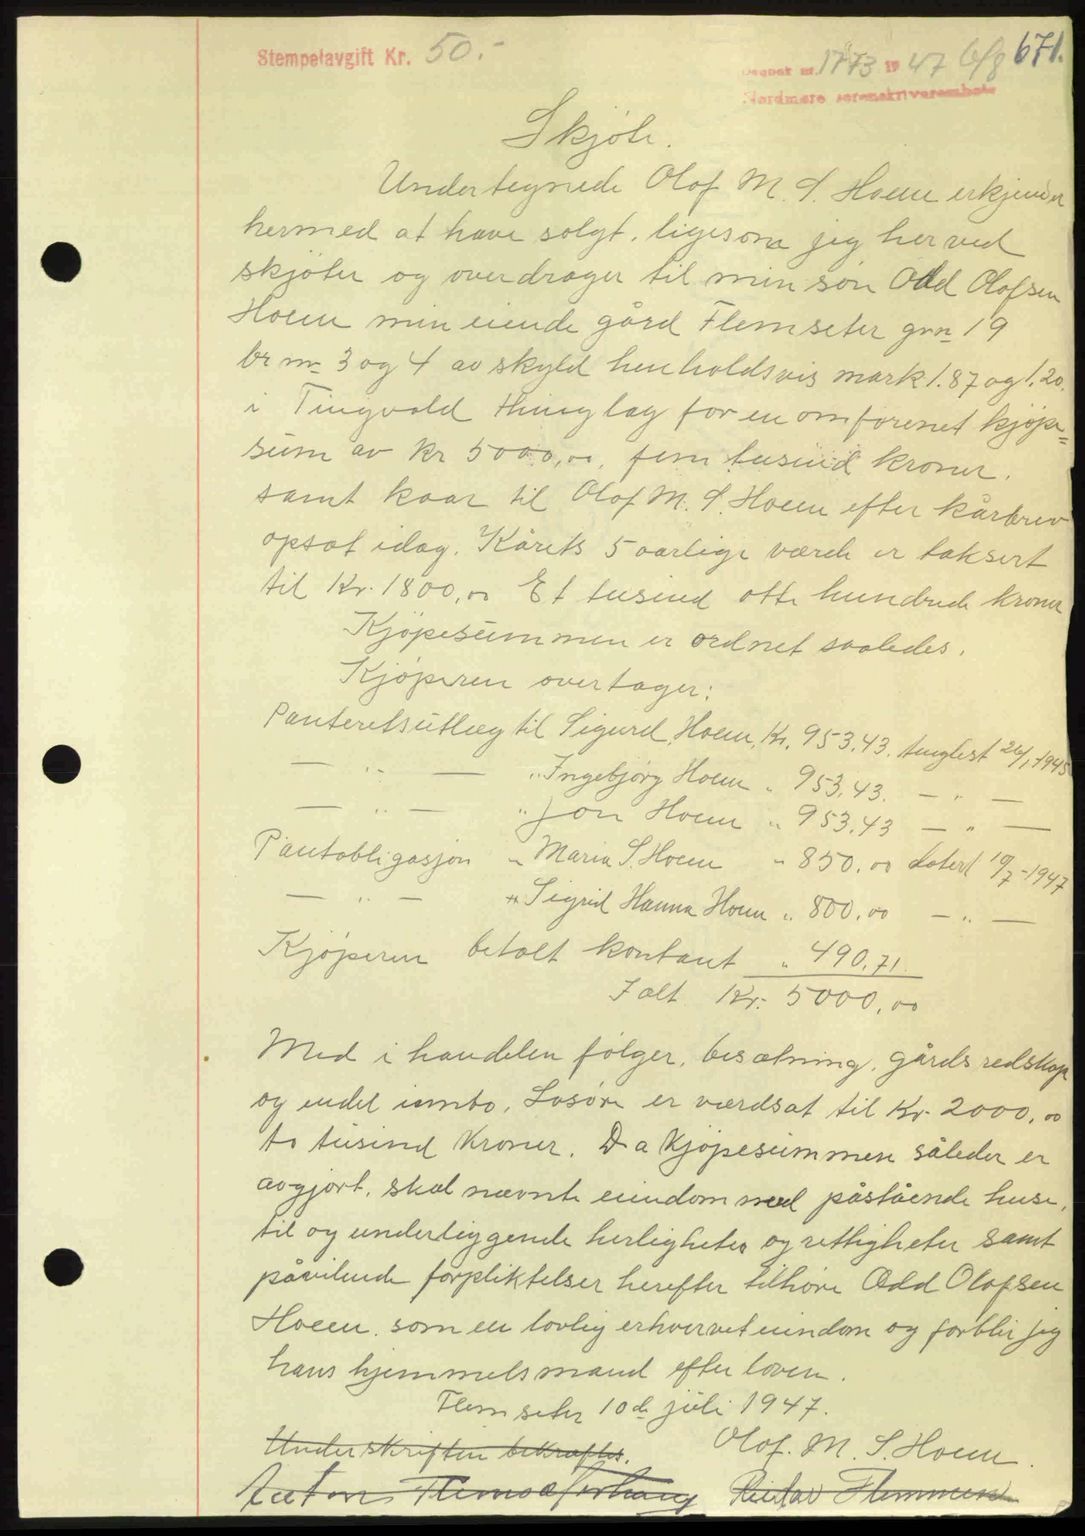 Stempelavgift Kr. 50.-
Dagbok nr. 1773 19 47 6/8 671.
Nordmøre sorenskriverembete
Skjöte.
Undertegnede Olof M. S. Hoem erkjender
hermed at have solgt, ligesom jeg herved
skjöter og overdrager til min sön Odd Olofsen
Hoem min eiende gård Flemseter gnr 19
br nr 3 og 4 av skyld henholdsvis mark 1.87 og 1.20.
i Tingvold thinglag for en omforenet kjöpe=
sum av Kr 5000,00, fem tusind kroner.
samt kaar til Olof M. S. Hoem efter kårbrev
opsat idag. Kårets 5 aarlige værde er taksert
til Kr. 1800,00 Et tusind otte hundrede kroner
Kjöpesummen er ordnet saaledes.
Kjöperen overtager:
Panteretsutlæg til Sigurd Hoem, Kr. 953.43. tinglest 26/1 1945
— " — " Ingebjörg Hoem " 953.43. — " —
— " — " Jon Hoem " 953.43 — " —
Pantobligasjon " Maria S. Hoem " 850,00 datert 10/7-1947
— " — " Sigrid Hanna Hoem " 800,00 — " —
Kjöperen betalt kontant " 490,71
I alt Kr. 5000,00
Med i handelen fölger, besætning, gårdsredskap
og endel innbo. Lösöre er værdsat til Kr. 2000,00
to tusind Kroner. Da Kjöpesummen således er
avgjort, skal nævnte eiendom med påstående huse,
til og underliggende herligheter og rettigheter samt
påvilende forpliktelser herefter tilhöre Odd Olofsen
Hoem, som en lovlig erhvervet eiendom og forblir jeg
hans hjemmelsmand efter loven.
Flemseter 10de juli 1947.
Underskriften bekræftes. Olof. M. S. Hoem.